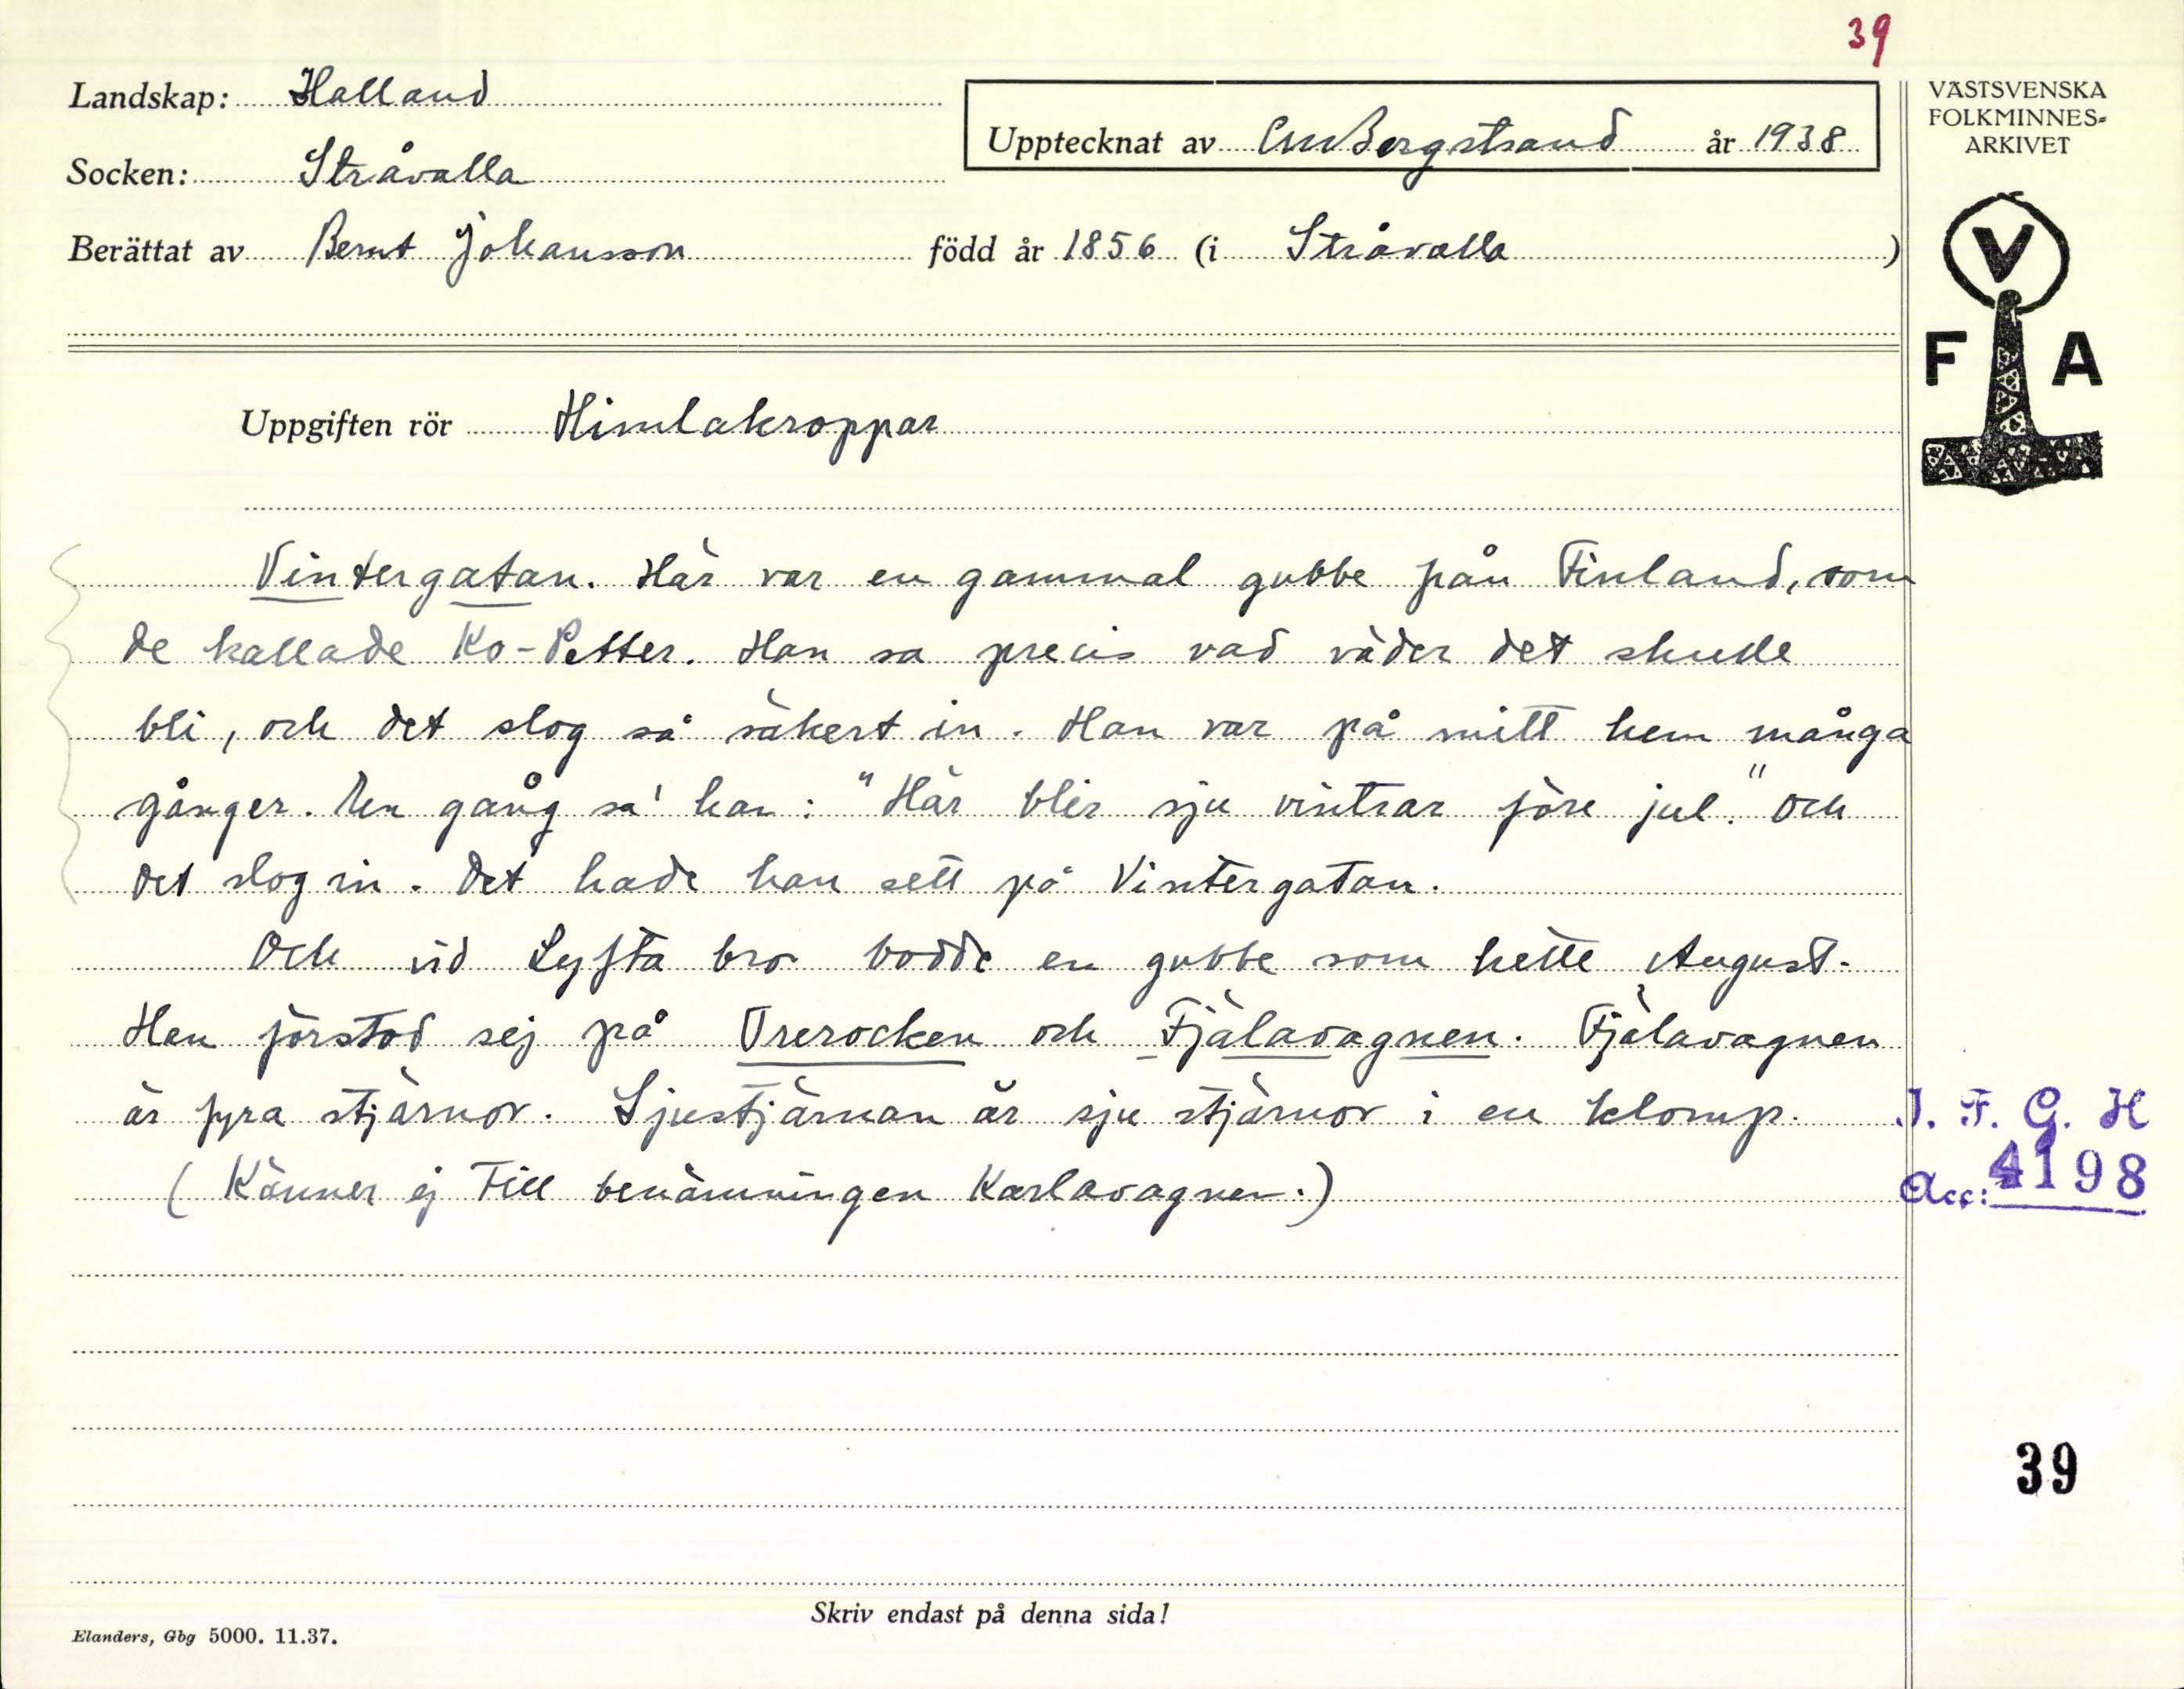 39
Landskap: Halland
Upptecknat av CMBergstrand år 1938
VÄSTSVENSKA
FOLKMINNES-
ARKIVET
Socken: Stråvalla
Berättat av Bernt Johansson född år 1856 (i Stråvalla)
V
F A
Uppgiften rör Himlakroppar
Vintergatan. Här var en gammal gubbe från Finland, som
de kallade Ko-Petter. Han sa precis vad väder det skulle
bli, och det slog så säkert in. Han var på mitt hem många
gånger. En gång sa' han: "Här blir sju vintrar före jul." Och
det slog in. Det hade han sett på Vintergatan.
Och vid Lyfta bro bodde en gubbe som hette August.
Han förstod sej på Orerocken och Fjälavagnen. Fjälavagnen
är fyra stjärnor. Sjustjärnan är sju stjärnor i en klomp.
(Känner ej till benämningen Karlavagnen.)
I. F. G. H
Acc: 4198
39
Skriv endast på denna sida!
Elanders, Gbg 5000. 11.37.